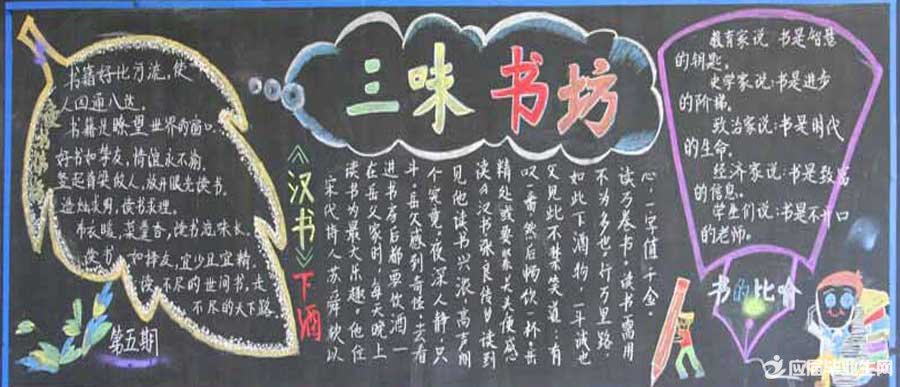 三味书坊
书籍好比河流,使
人四通八达。
书籍是瞭望世界的窗口。
好书如挚友,情谊永不渝。
竖起脊梁做人,放开眼光读书。
造烛求明,读书求理。
布衣暖,菜羹香,读书滋味长。
读书如择友,宜少且宜精。
读不尽的世间书,走
不尽的天下路。
第五期
《汉书》下酒
宋代诗人苏舜钦以
读书为最大乐趣。他住
在岳父家时,每天晚上
进书房后都要饮酒一
斗。岳父感到奇怪,去看
个究竟。夜深人静,只
见他读书兴浓,高声朗
读《汉书张良传》读到
精处或要紧关头便感
叹一番,然后畅饮一杯。岳
父见此不禁笑道:有
如此下酒物,一斗诚也
不为多也。行万里路,
读万卷书,读书需用
心,一字值千金。
教育家说:书是智慧
的钥匙。
史学家说:书是进步
的阶梯。
政治家说:书是时代
的生命。
经济家说:书是致富
的信息。
学生们说:书是不开口
的老师。
书的比喻
应届毕业生网